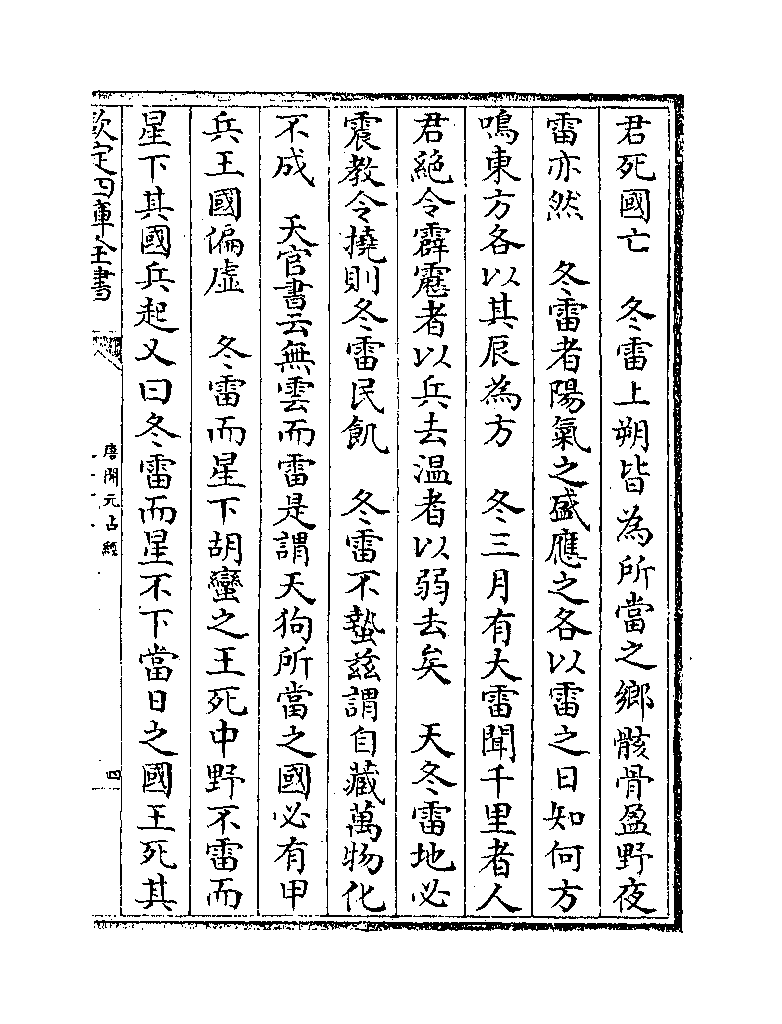 君死國亡　冬雷上朔皆為所當之鄉骸骨盈野夜
雷亦然　冬雷者陽氣之盛應之各以雷之日知何方
鳴東方各以其辰為方　冬三月有大雷聞千里者人
君絕令霹靂者以兵去温者以弱去矣　天冬雷地必
震教令撓則冬雷民飢　冬雷不蟄兹謂自藏萬物化
不成　天官書云無雲而雷是謂天狗所當之國必有甲
兵王國偏虛　冬雷而星下胡蠻之王死中野不雷而
星下其國兵起又曰冬雷而星不下當日之國王死其
欽定四庫全書
唐開元占經
四